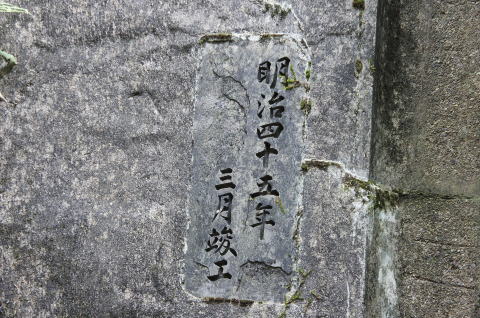 明治四十五年
三月竣工